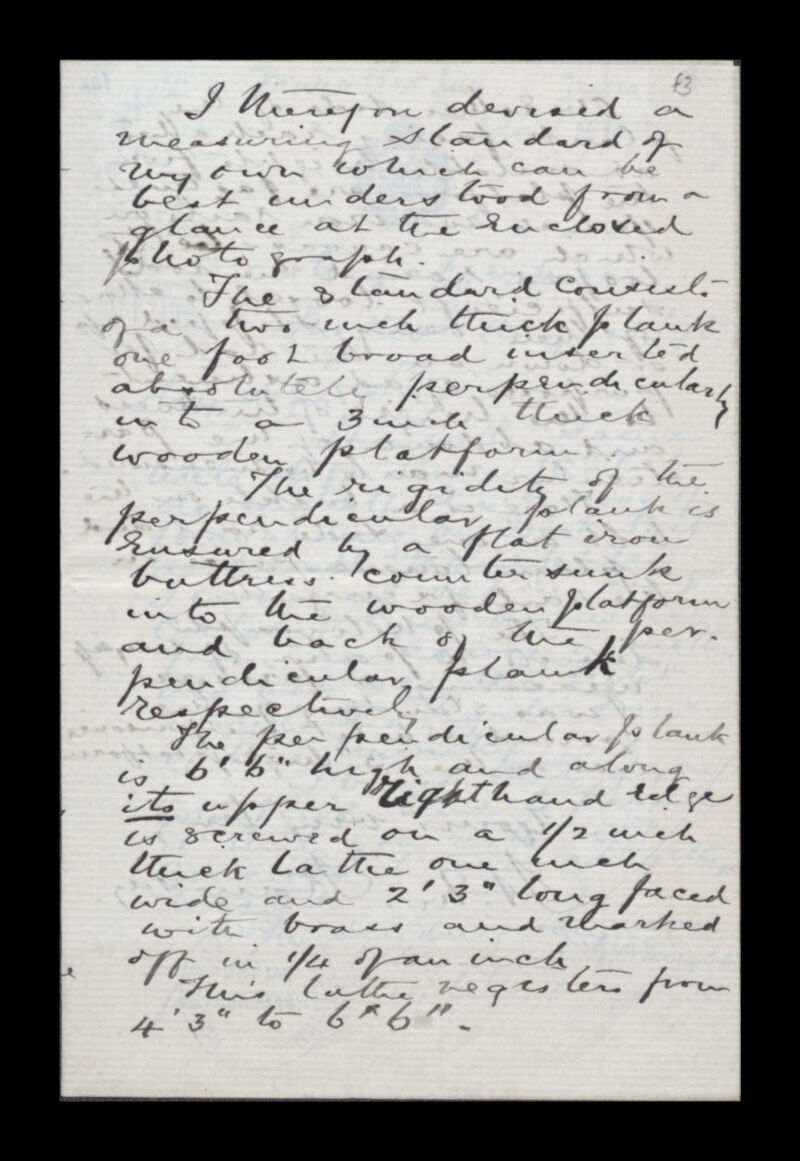 f3
I thereupon devised a
measuring standard of
my own which can be
best understood from a
glance at the enclosed
photograph.
The standard consists
of a two inch thick plank
one foot broad inserted
absolutely perpendicularly
into a 3 inch thick
wooden platform.
The rigidity of the
perpendicular plank is
ensured by a flat iron
buttress countersunk
into the wooden platform
and back of the per-
pendicular plank
respectively
The perpendicular plank
is 6' 6" high and along
its upper righthand edge
is screwed on a 1/2 inch
thick lathe one inch
wide and 2' 3" long faced
with brass and marked
off in 1/4 of an inch
This lathe registers from
4' 3" to 6' 6".